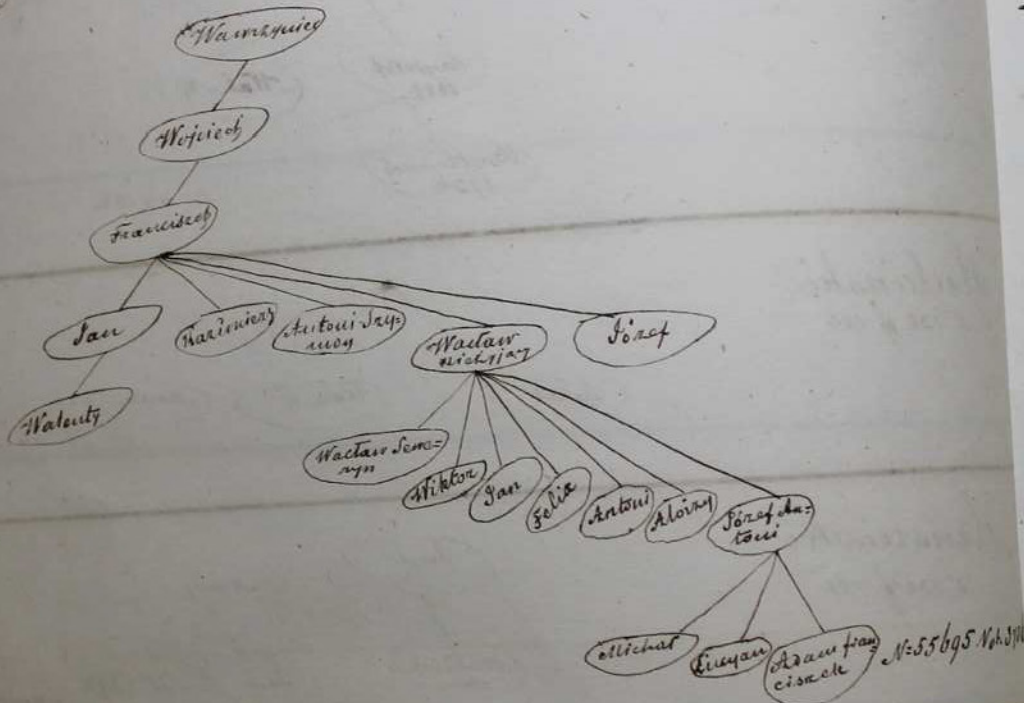 Wawrzyniec
Wojciech
Franciszek
Jan
Kazimierz
Antoni Szy=
mon
Wacław
Józef
Walenty
Wacław Sewe=
ryn
Wiktor
Jan
Felix
Antoni
Aloizy
Józef An=
toni
Michał
Lucyan
Adam Fran=
ciszek
N=55695 Nob.